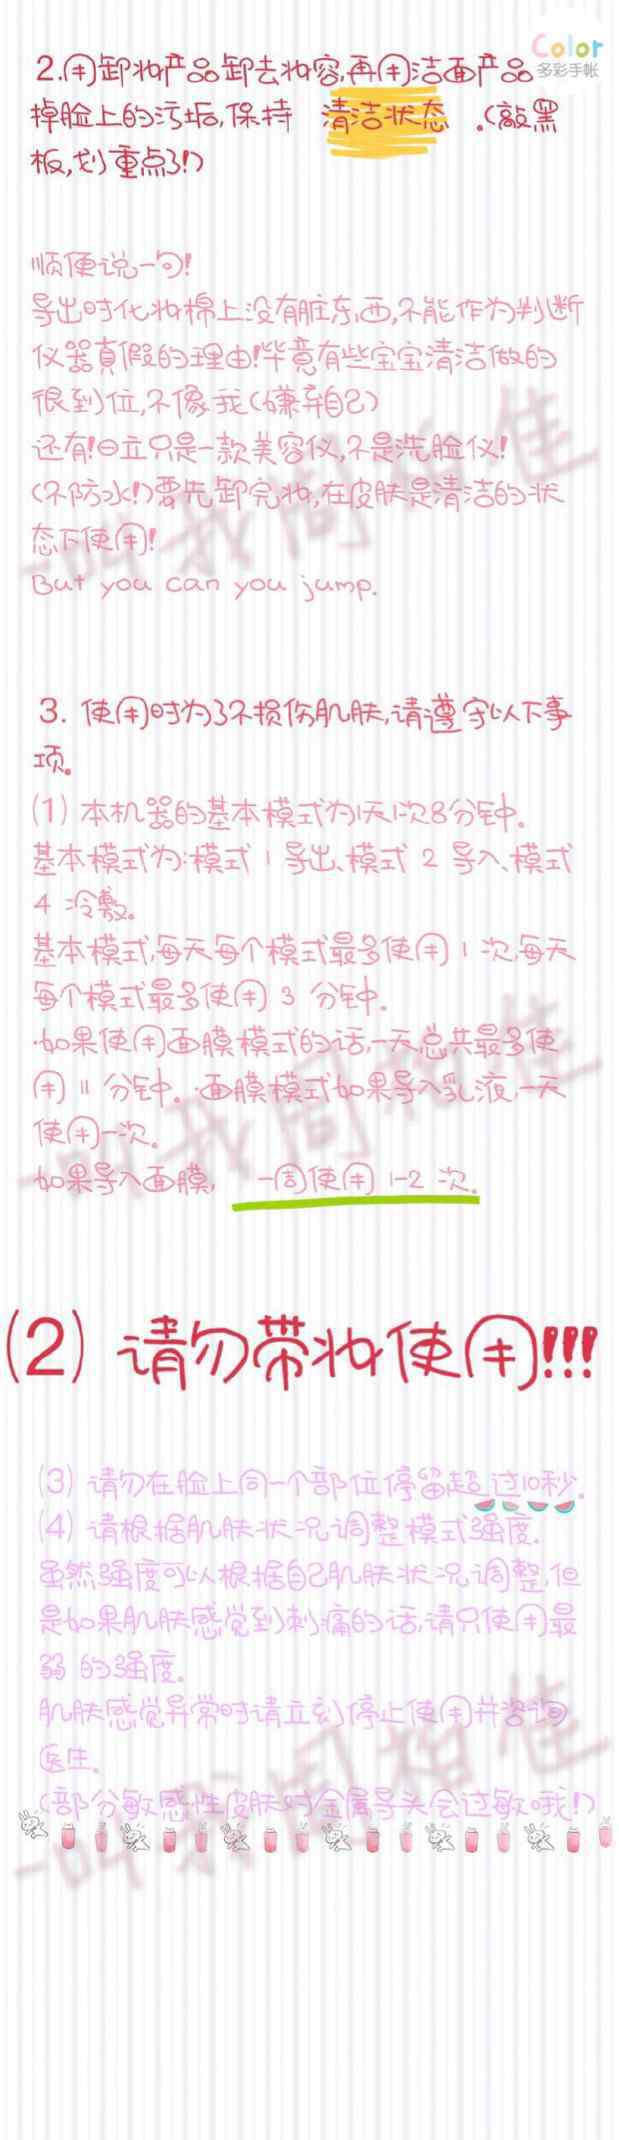 Color
多彩手帐
2.用卸妆产品卸去妆容,再用洁面产品
掉脸上的污垢,保持 清洁状态 。(敲黑
板,划重点了!)
顺便说一句!
导出时化妆棉上没有脏东西,不能作为判断
仪器真假的理由!毕竟有些宝宝清洁做的
很到位,不像我(嫌弃自己)
还有!日立只是一款美容仪,不是洗脸仪!
(不防水!)要先卸完妆,在皮肤是清洁的状
态下使用!
But you can you jump.
3. 使用时为了不损伤肌肤,请遵守以下事
项。
(1) 本机器的基本模式为1天1次8分钟。
基本模式为:模式 1 导出、模式 2 导入、模式
4 冷敷。
基本模式,每天每个模式最多使用 1 次,每天
每个模式最多使用 3 分钟。
·如果使用面膜模式的话,一天总共最多使
用 11 分钟。·面膜模式如果导入乳液,一天
使用一次。
如果导入面膜, 一周使用 1-2 次。
(2) 请勿带妆使用!!!
(3) 请勿在脸上同一个部位停留超过10秒。
(4) 请根据肌肤状况调整模式强度。
虽然强度可以根据自己肌肤状况调整,但
是如果肌肤感觉到刺痛的话,请只使用最
弱 的强度。
肌肤感觉异常时请立刻停止使用并咨询
医生。
(部分敏感性皮肤对金属导头会过敏哦!)
-叫我周柏佳
-叫我周柏佳
-叫我周柏佳